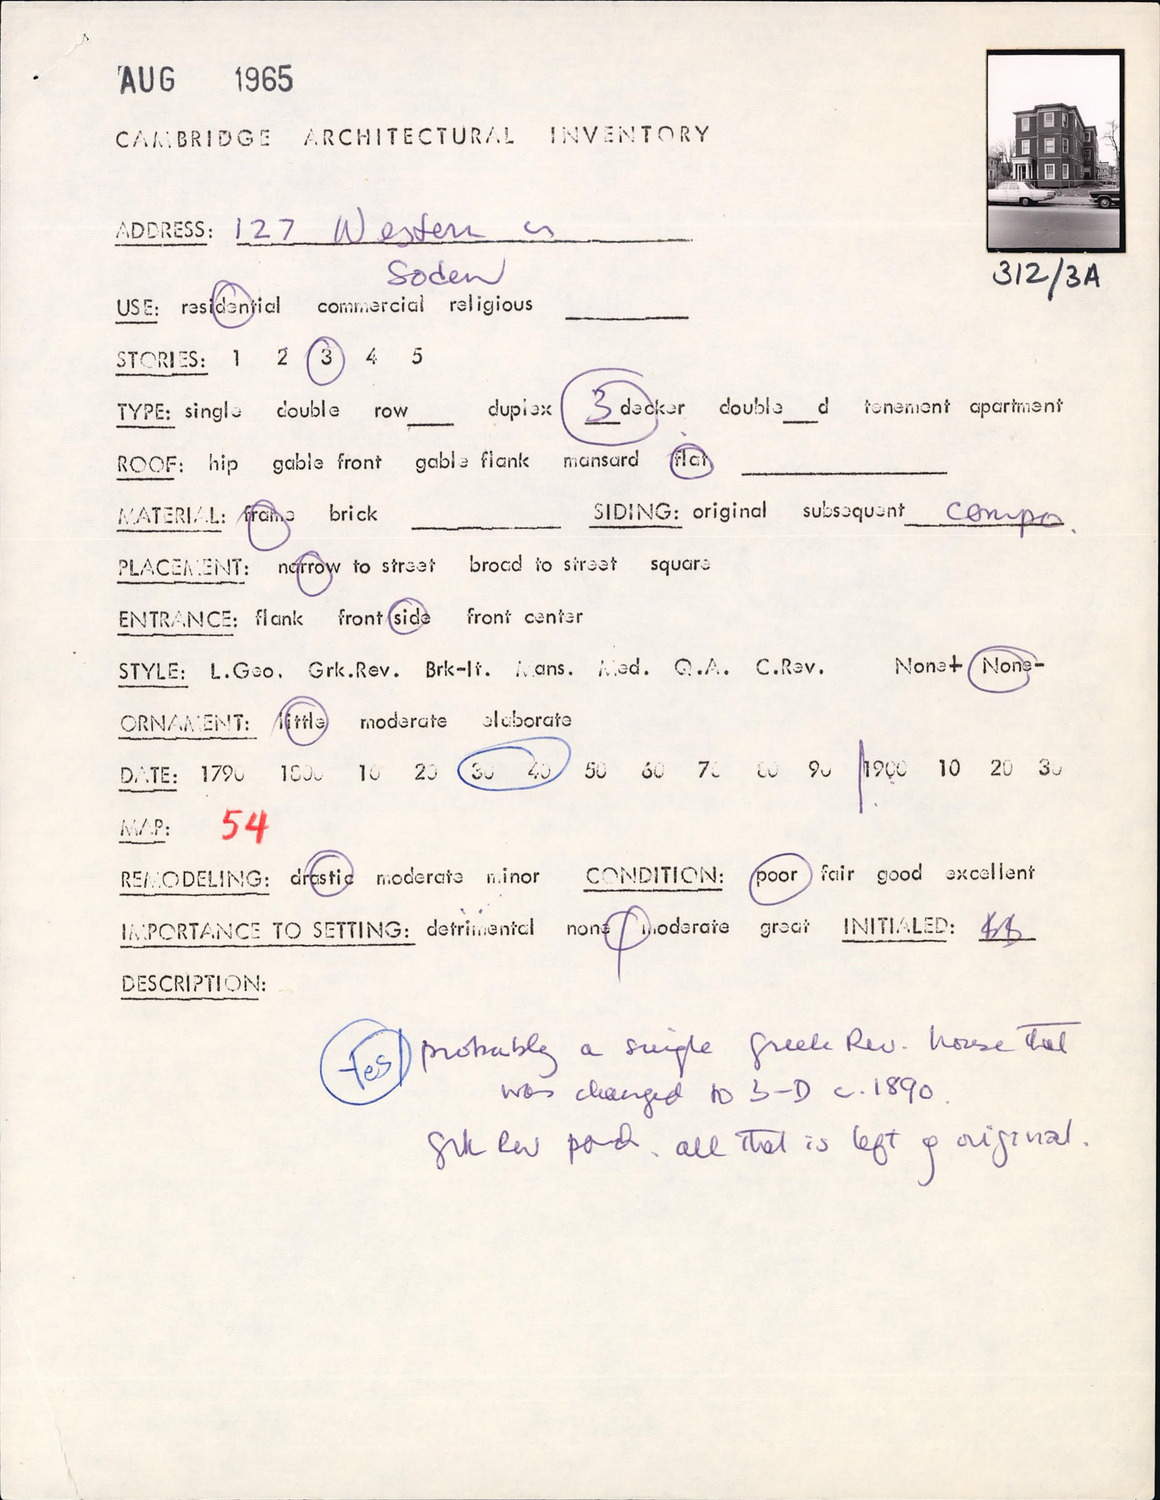 AUG 1965
CAMBRIDGE ARCHITECTURAL INVENTORY
312/3A
ADDRESS: 127 Western
Soden
USE: residential commercial religious
STORIES: 1 2 3 4 5
TYPE: single double row duplex 3 decker double d tenement apartment
ROOF: hip gable front gable flank mansard flat
MATERIAL: frame brick SIDING: original subsequent compo.
PLACEMENT: narrow to street broad to street square
ENTRANCE: flank front side front center
STYLE: L.Geo. Grk.Rev. Brk-It. Mans. Med. Q.A. C.Rev. None+ None-
ORNAMENT: little moderate elaborate
DATE: 1790 1800 10 20 30 40 50 60 70 80 90 1900 10 20 30
MAP: 54
REMODELING: drastic moderate minor CONDITION: poor fair good excellent
IMPORTANCE TO SETTING: detrimental none moderate great INITIALED:
DESCRIPTION:
Yes probably a single Greek Rev. house that
was changed to 3-D c. 1890.
Grk Rev porch. all that is left of original.